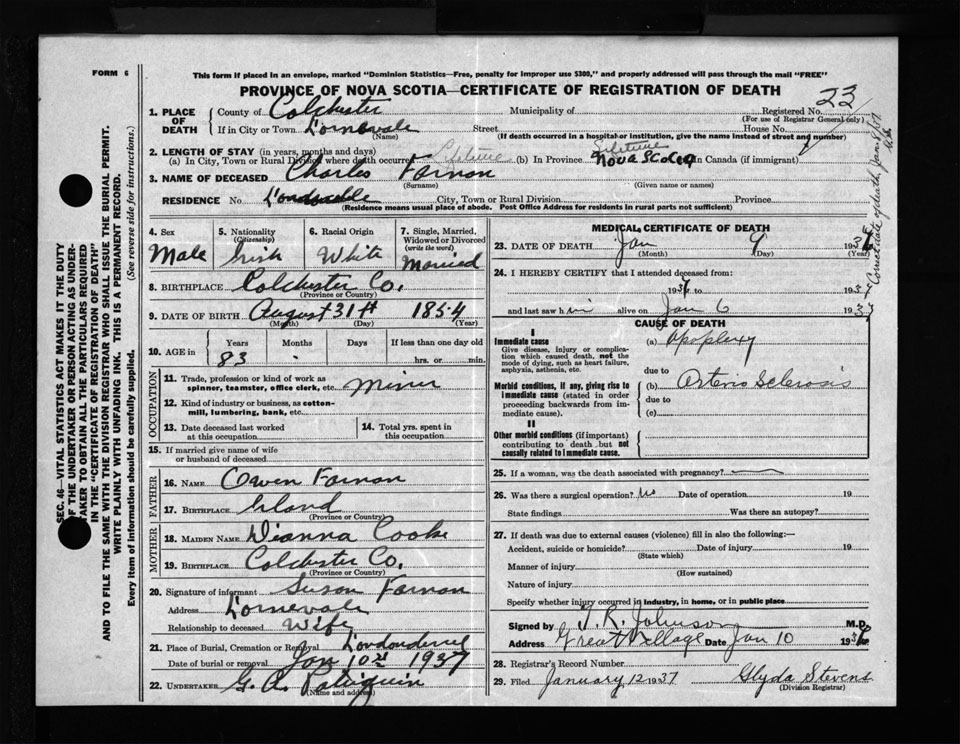 FORM 6
This form if placed in an envelope, marked "Dominion Statistics—Free, penalty for improper use $300," and properly addressed will pass through the mail "FREE"
PROVINCE OF NOVA SCOTIA—CERTIFICATE OF REGISTRATION OF DEATH
1. PLACE OF DEATH
County of Colchester Municipality of Registered No. 23
(For use of Registrar General only)
If in City or Town Lornevale Street House No.
(Name) (If death occurred in a hospital or institution, give the name instead of street and number)
2. LENGTH OF STAY (in years, months and days)
(a) In City, Town or Rural Division where death occurred Lifetime (b) In Province Lifetime Nova Scotia in Canada (if immigrant)
3. NAME OF DECEASED Charles Farnon
(Surname) (Given name or names)
RESIDENCE No. City, Town or Rural Division Province
(Residence means usual place of abode. Post Office Address for residents in rural parts not sufficient)
4. Sex Male
5. Nationality (Citizenship) Irish
6. Racial Origin White
7. Single, Married, Widowed or Divorced (write the word) Married
8. BIRTHPLACE Colchester Co.
(Province or Country)
9. DATE OF BIRTH August 31st 1854
(Month) (Day) (Year)
10. AGE in Years Months Days If less than one day old
83 hrs. or min.
OCCUPATION
11. Trade, profession or kind of work as spinner, teamster, office clerk, etc. Miner
12. Kind of industry or business, as cotton-mill, lumbering, bank, etc.
13. Date deceased last worked at this occupation
14. Total yrs. spent in this occupation
15. If married give name of wife or husband of deceased
FATHER
16. NAME Owen Farnon
17. BIRTHPLACE Irland
(Province or Country)
MOTHER
18. MAIDEN NAME Dianna Cooke
19. BIRTHPLACE Colchester Co.
(Province or Country)
20. Signature of informant Susan Farnon
Address Lornevale
Relationship to deceased Wife
21. Place of Burial, Cremation or Removal
Date of burial or removal Jan 10 1937
22. UNDERTAKER G. A.
(Name and address)
MEDICAL CERTIFICATE OF DEATH
23. DATE OF DEATH Jan 9 193
(Month) (Day) (Year)
24. I HEREBY CERTIFY that I attended deceased from:
193 to 193
and last saw h im alive on Jan 6 193
CAUSE OF DEATH
I
Immediate cause
Give disease, injury or complication which caused death, not the mode of dying, such as heart failure, asphyxia, asthenia, etc.
(a) Apoplexy
due to
Morbid conditions, if any, giving rise to immediate cause (stated in order proceeding backwards from immediate cause).
(b) Arterio Sclerosis
due to
(c)
II
Other morbid conditions (if important) contributing to death but not causally related to immediate cause.
25. If a woman, was the death associated with pregnancy?
26. Was there a surgical operation? No Date of operation 19
State findings Was there an autopsy?
27. If death was due to external causes (violence) fill in also the following:—
Accident, suicide or homicide? Date of injury 19
(State which)
Manner of injury
(How sustained)
Nature of injury
Specify whether injury occurred in industry, in home, or in public place
Signed by T. R. Johnson M.D.
Address Great Village Date Jan 10 193
28. Registrar's Record Number
29. Filed January 12 1937 Glyda Stevens
(Division Registrar)
SEC. 46—VITAL STATISTICS ACT MAKES IT THE DUTY
OF THE UNDERTAKER OR PERSON ACTING AS UNDER-
TAKER TO OBTAIN ALL THE PARTICULARS REQUIRED
IN THE "CERTIFICATE OF REGISTRATION OF DEATH"
AND TO FILE THE SAME WITH THE DIVISION REGISTRAR WHO SHALL ISSUE THE BURIAL PERMIT.
WRITE PLAINLY WITH UNFADING INK. THIS IS A PERMANENT RECORD.
Every item of information should be carefully supplied. (See reverse side for instructions.)
Correct date of death, Jan